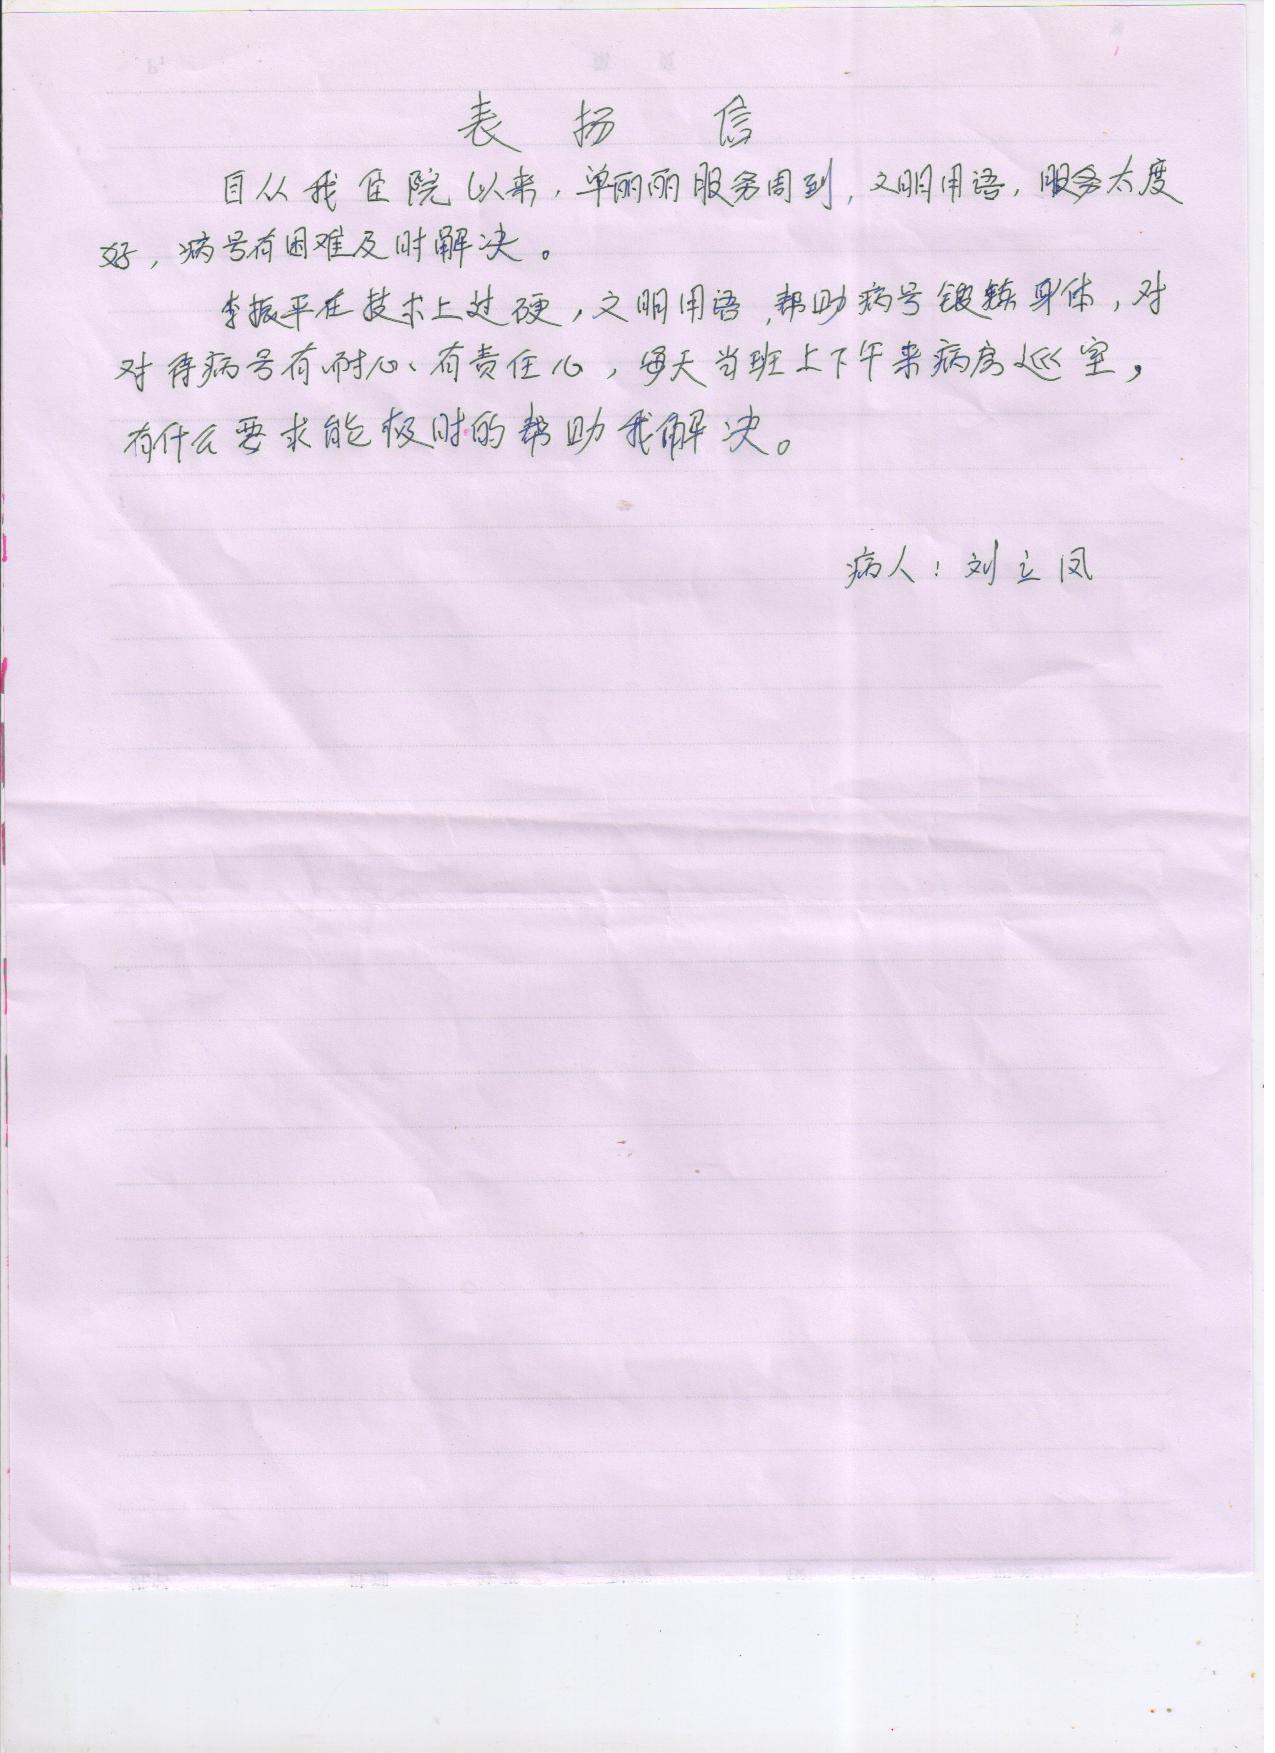 表扬信
自从我住院以来，单丽丽服务周到，文明用语，服务太度
好，病号有困难及时解决。
李振平在技术上过硬，文明用语，帮助病号锻鍊身体，对
对待病号有耐心、有责任心，每天当班上下午来病房巡室，
有什么要求能极时的帮助我解决。
病人：刘立凤